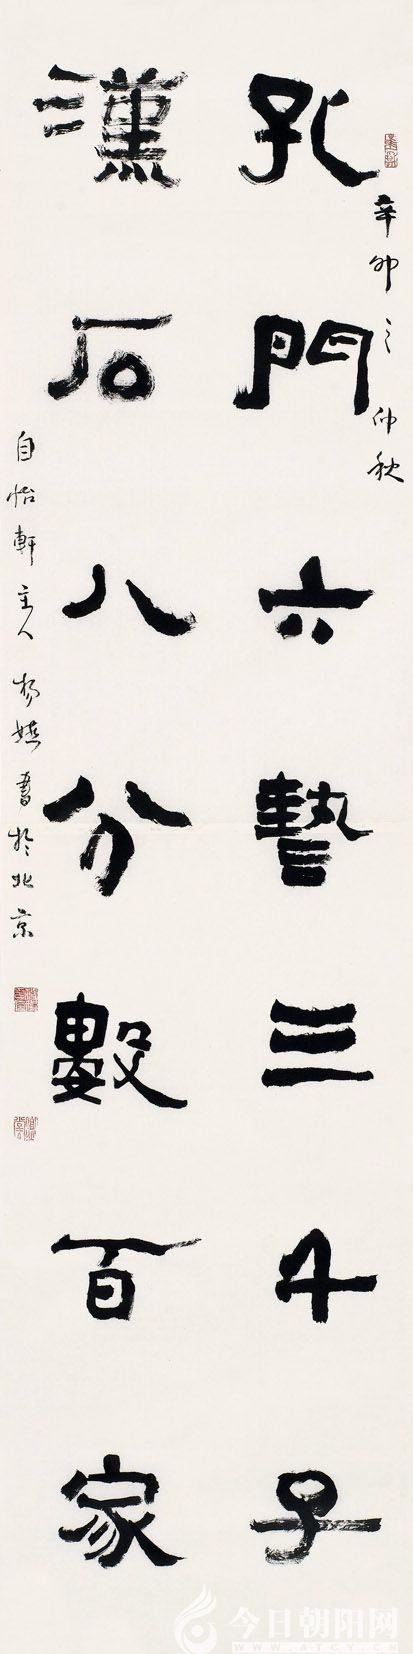 辛卯之仲秋
孔門六藝三千子
漢石八分數百家
自怡軒主人楊書於北京
今日朝阳网